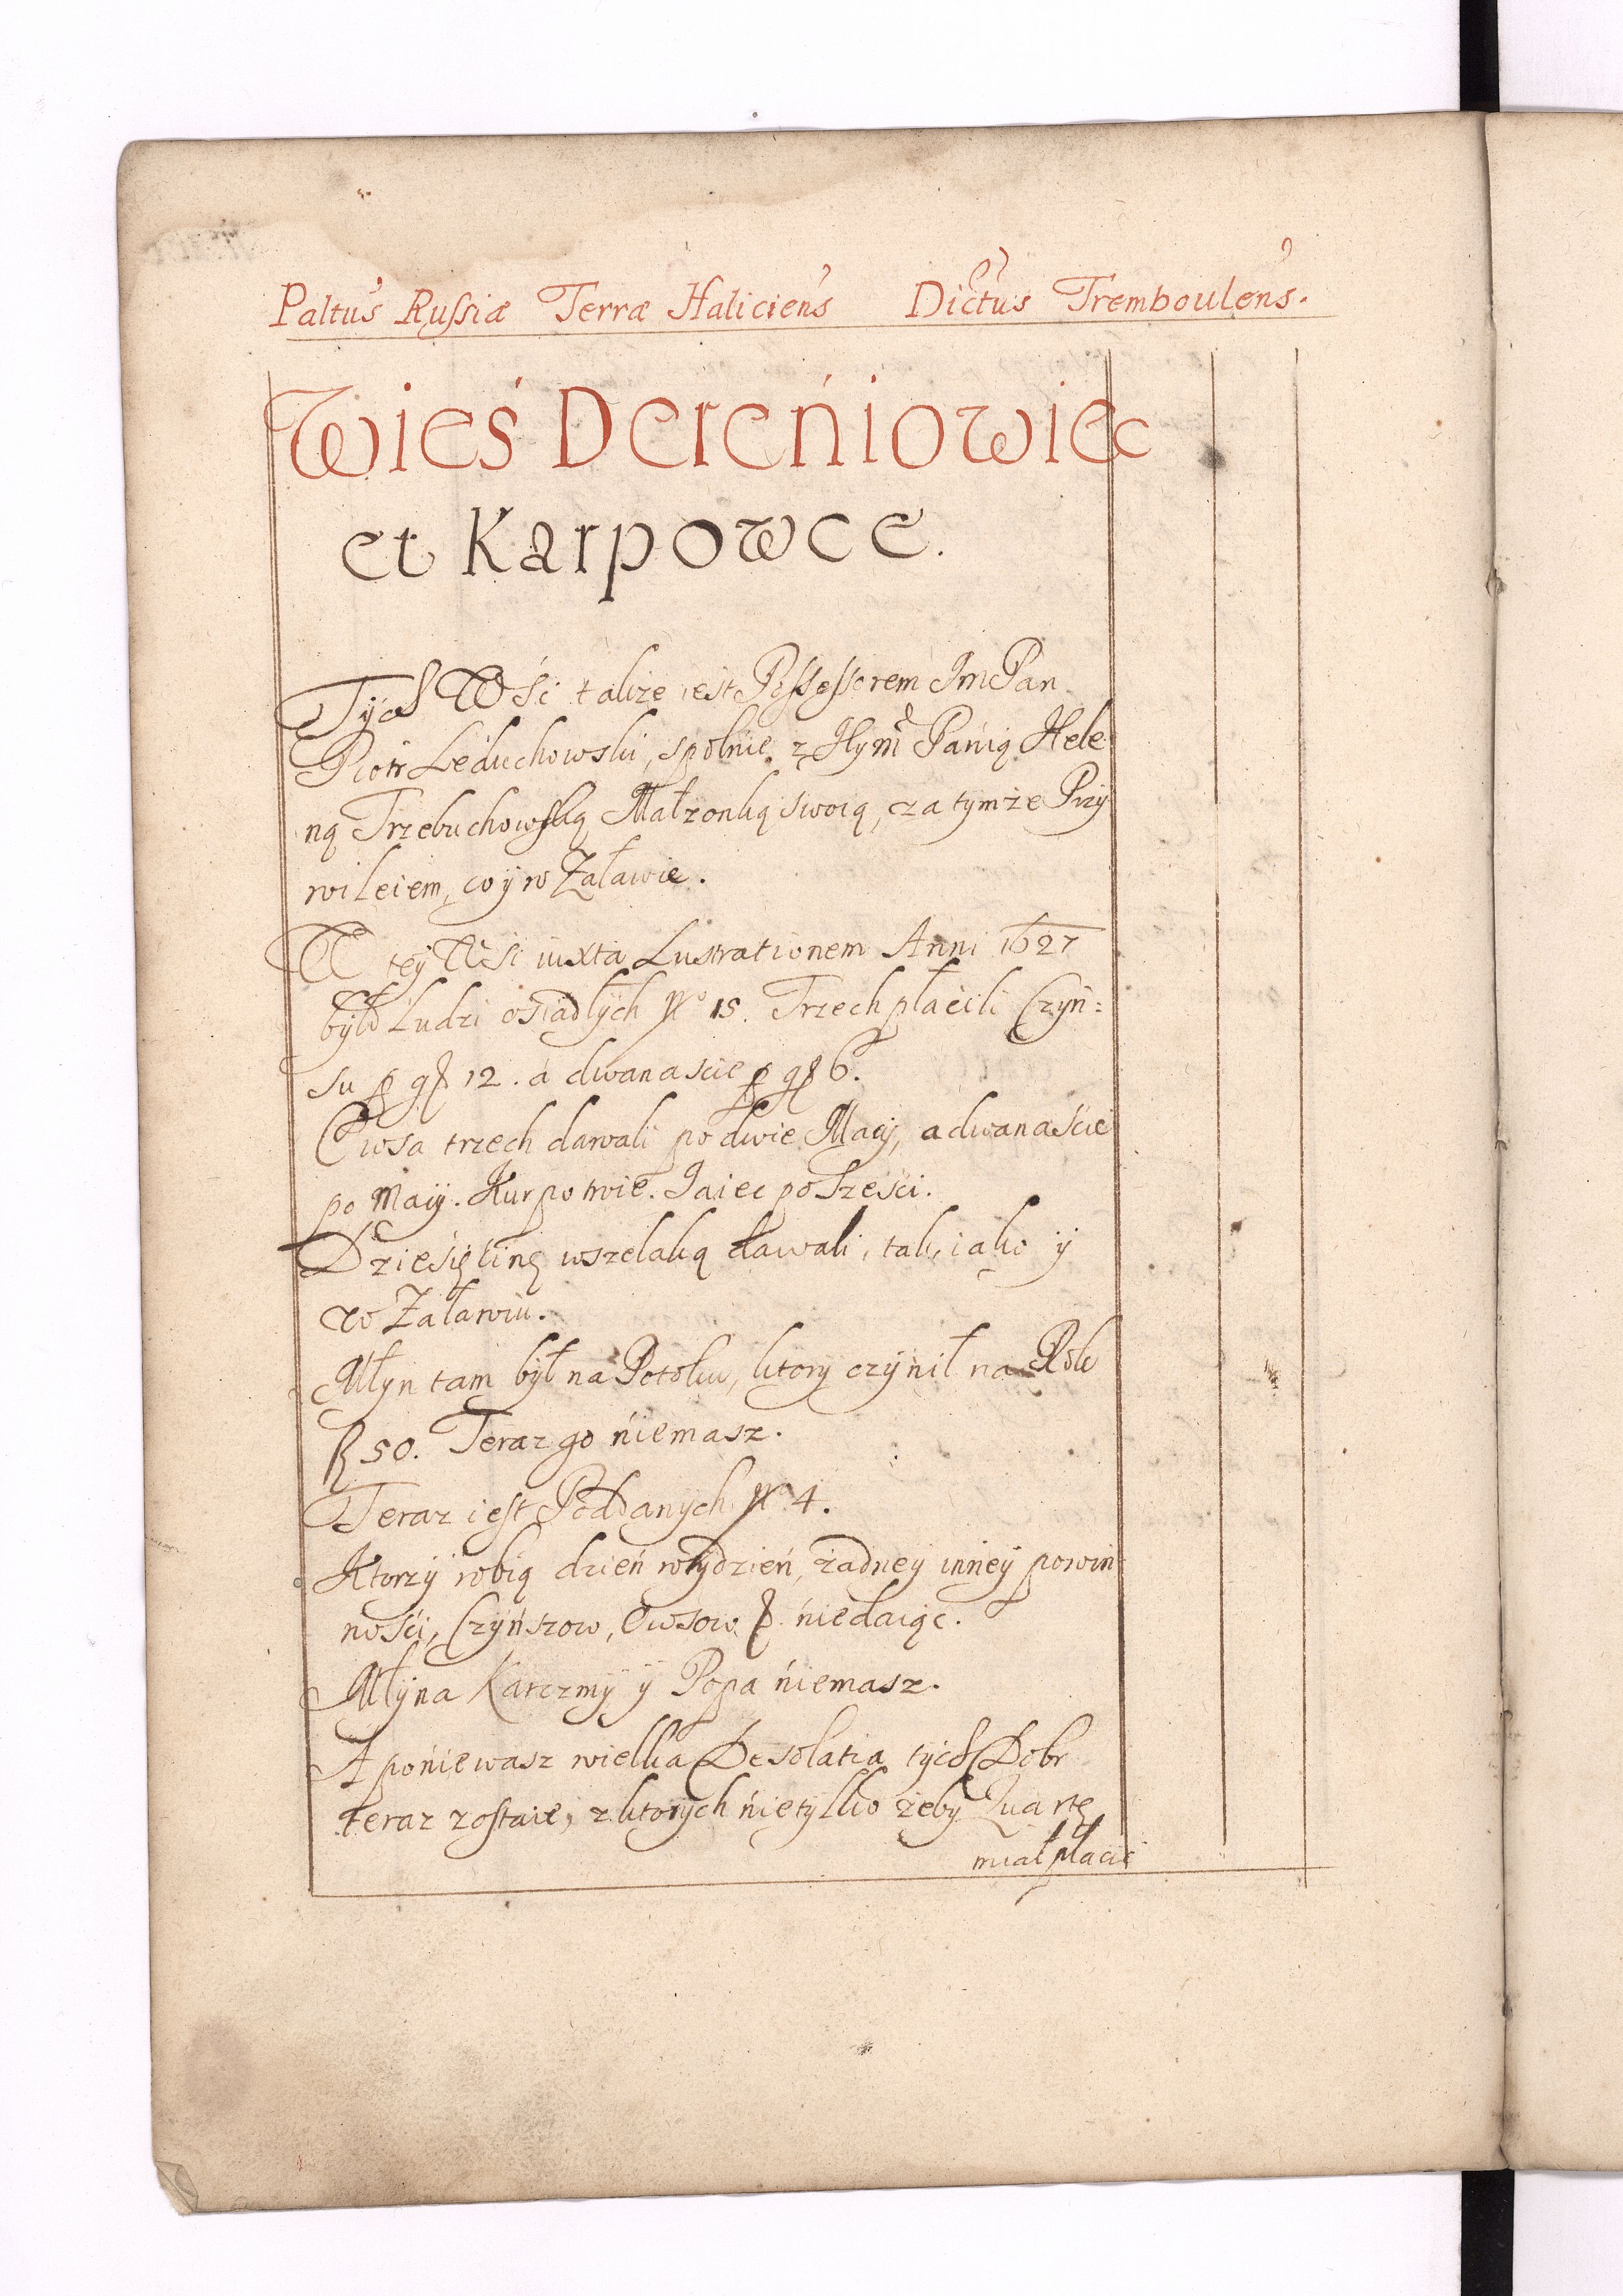 Paltus Russiæ Terræ Haliciens Dictus Tremboulens.
Wieś Dereńiowiec
et Karpowce.
Tÿch Wśi także iest Possessorem Jm Pan
Piotr Leduchowski, spolnie z Jÿmć Panią Hele
ną Trzebuchowską Małzonką swoią, za tymże Przy
wileiem, co ÿ w Załawie.
W teÿ Wsi iuxta Lustrationem Anni 1627
było Ludzi osiadłÿch No 15. Trzech płacili Czÿn:
su p gr 12. a dwanascie p gr 6.
Owsa trzech dawali po dwie Macÿ, a dwanaście
po Macÿ. Kur po dwie. Jaiec po Sześci.
Dzieśięćinę wszelaką dawali, tak, iako ÿ
w Załawiu.
Młÿn tam był na Potoku, ktorÿ czÿnił na Rok
fl 50. Teraz go niemasz.
Teraz iest Poddanÿch No 4.
Ktorzÿ robią dzień w tÿdzień, żadneÿ inneÿ powin
nośći, Czÿnszow, Owsow, niedaiąc.
Młÿna Karczmÿ ÿ Popa niemasz.
A poniewasz wielka Desolatia tÿch Dobr
teraz zostaie, z ktorÿch nietÿlko żebÿ Quartę
miał płacić